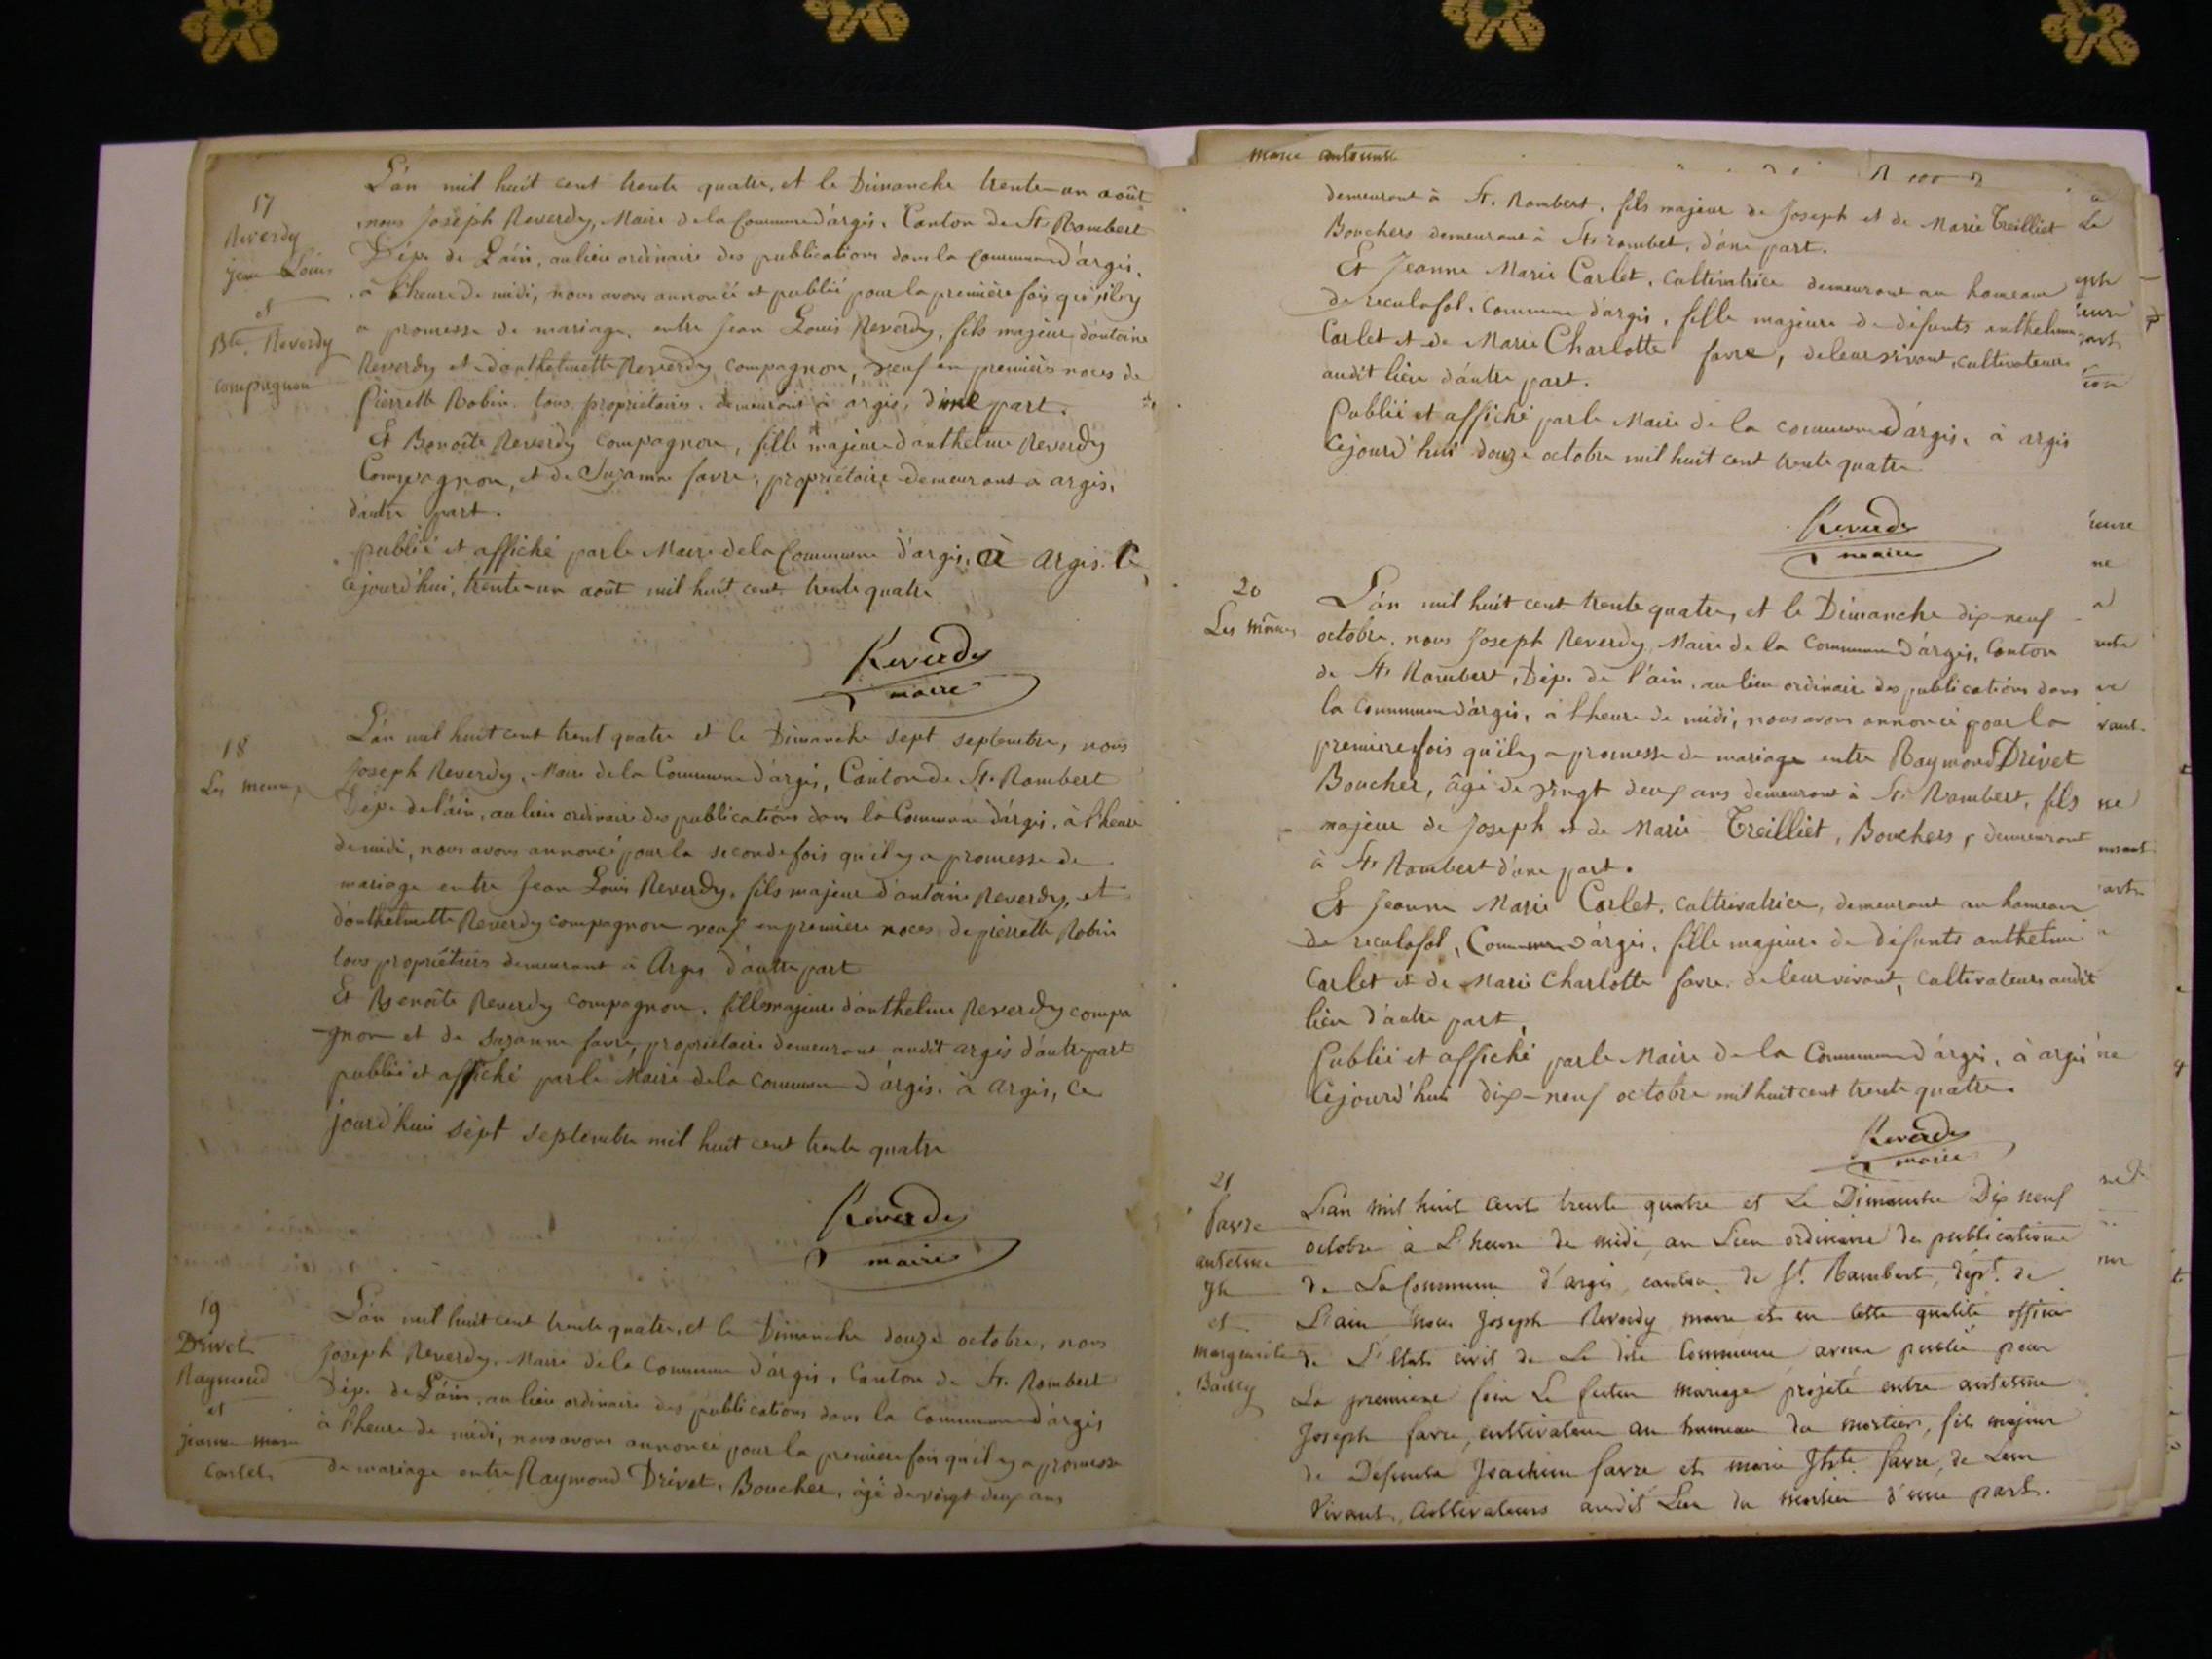 17
Reverdy
jean Louis
et
Bte. Reverdy
compagnon
L'án mil huit cent trente quatre, et le Dimanche trente-un août
nous Joseph Reverdy, Maire de la Commune d'argis, Canton de St. Rambert
Dép. de L'áin, au lieu ordinaire des publications dans la commune d'argis,
à l'heure de midi, nous avons annoncé et publié pour la première fois qu'il y
a promesse de mariage, entre Jean Louis Reverdy, fils majeur d'antoine
Reverdy et d'anthelmette Reverdy compagnon, veuf en premières noces de
Pierrette Robin tous propriétaires, demeurant à argis, d'une part.
Et Benoîte Reverdy compagnon, fille majeure d'anthelme Reverdy
Compagnon, et de Suzanne favre, propriétaire demeurant à argis,
d'autre part.
publié et affiché par le Maire de la Commune d'argis, à argis. Ce
cejourd'hui, trente-un août mil huit cent trente quatre
Reverdy
maire
18
Les memes
L'án mil huit cent trent quatre et le Dimanche sept septembre, nous
Joseph Reverdy, Maire de la Commune d'argis, Canton de St. Rambert
Dép. de l'áin, au lieu ordinaire des publications dans la Commune d'argis, à l'heure
de midi, nous avons annoncé pour la seconde fois qu'il y a promesse de
mariage entre Jean Louis Reverdy, fils majeur d'antoine Reverdy, et
d'anthelmette Reverdy compagnon veuf en première noces de pierrette Robin
tous propriétaires demeurant à Argis d'autre part
Et Benoîte Reverdy compagnon, fille majeure d'anthelme Reverdy compa
-gnon et de Suzanne favre, propriétaire demeurant audit argis d'autre part
publié et affiché par le Maire de la commune d'argis, à argis, ce
jourd'hui sept septembre mil huit cent trente quatre
Reverdy
maire
19
Drivet
Raymond
et
jeanne marie
Carlet
L'án mil huit cent trente quatre, et le Dimanche douze octobre, nous
Joseph Reverdy, Maire de la Commune d'argis, Canton de St. Rambert
Dép. de L'áin, au lieu ordinaire des publications dans la Commune d'argis
à l'heure de midi, nous avons annoncé pour la première fois qu'il y a promesse
de mariage entre Raymond Drivet, Boucher, âgé de vingt deux ans
marie
demeurant à St. Rambert, fils majeur de Joseph et de Marie Treilliet
Bouchers demeurant à St. rambet, d'une part.
Et Jeanne Marie Carlet, cultivatrice demeurant au hameau
de reculafol, commune d'argis, fille majeure de défunts anthelme
Carlet et de Marie Charlotte favre, de leur vivant, cultivateurs
audit lieu d'autre part.
Publié et affiché par le Maire de la commune d'argis, à argis
Cejourd'hui douze octobre mil huit cent trente quatre
Reverdy
maire
20
Les mêmes
L'án mil huit cent trente quatre, et le Dimanche dix-neuf
octobre, nous Joseph Reverdy, Maire de la Commune d'argis, Canton
de St. Rambert, Dép. de l'áin, au lieu ordinaire des publications dans
la Commune d'argis, à l'heure de midi, nous avons annoncé pour la
première fois qu'il y a promesse de mariage entre Raymond Drivet
Boucher, âgé de vingt deux ans demeurant à St. Rambert, fils
majeur de Joseph et de Marie Treilliet, Bouchers, demeurant
à St. Rambert d'une part.
Et Jeanne Marie Carlet, cultivatrice, demeurant au hameau
de reculafol, Commune d'argis, fille majeure de défunts anthelme
Carlet et de Marie Charlotte favre, de leur vivant, cultivateurs audit
lieu d'autre part,
Publié et affiché par le Maire de la Commune d'argis, à argis
Cejourd'hui dix-neuf octobre mil huit cent trente quatre.
Reverdy
maire
21
favre
antelme
jh
et
marguerite
Bailly
L'an mil huit cent trente quatre et Le Dimanche Dix neuf
octobre à L'heure de midi, au Lieu ordinaire des publications
de La Commune d'argis, canton de St. Rambert, dépt. de
L'ain nous Joseph Reverdy maire et en cette qualité officier
de L'état civil de La dite Commune avons publié pour
La premiere fois Le futur mariage projeté entre antelme
Joseph favre, cultivateur au hameau du mortier, fils majeur
de Defunts Joachim favre et marie favre, de Leur
Vivant, Cultivateurs audit Lieu du mortier d'une part.